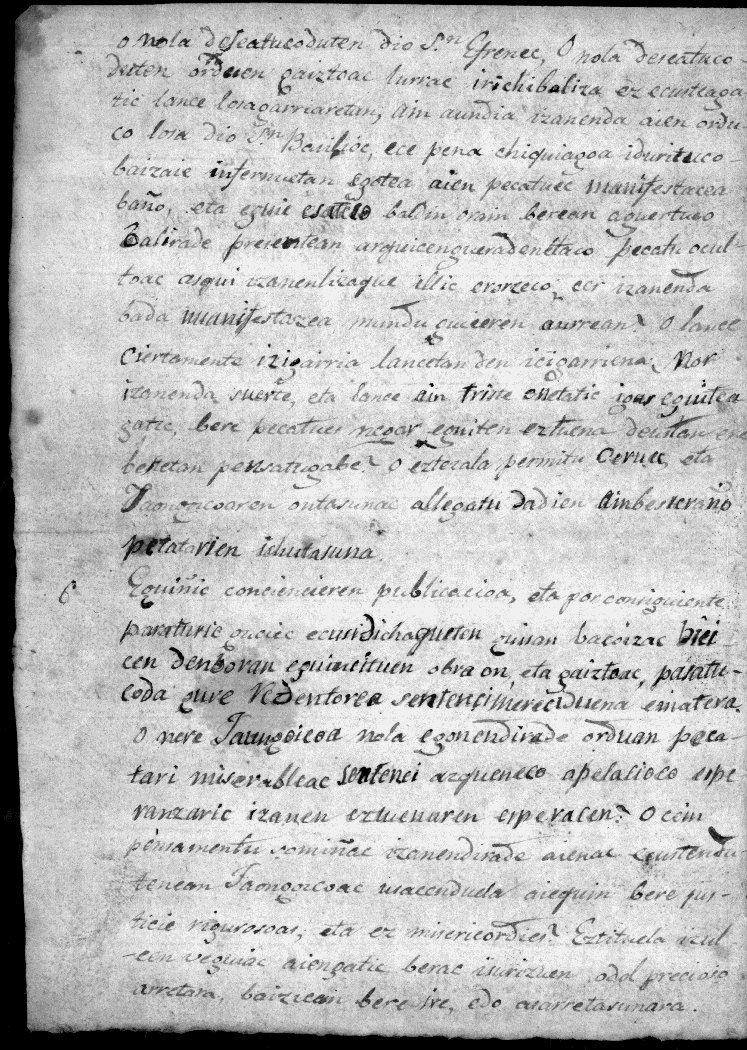 o nola descatucoduten dio S.n Efrenec, O nola desеatuco-
duten orduen gaiztoac lurrac irichibaliza ez ecusteaga
tic lance losagarriaretan, ain aundia izanenda aien ordu
co losa dio S.n Basilioc, ece pena chiquiagoa idurituco-
baizaie infernuetan egotea aien pecatuec manifestacea
baño, eta eguie esateco baldin orain berean aguertuco
balirade presentean arguicengueradenetaco pecatu ocul-
toac asqui izanenlizaque illic erorceco, cer izanenda
bada manifestazea mundu gucieren aurrean? O lance
Ciertamente izigarria lancetan den icigarriena, Nor
izanenda suerte, eta lance ain triste onetatic igas eguitea
gatic, bere pecatues negar eguiten eztuena deustan ere
betetan pensatugabe? O eztezala permitu Ceruec, eta
Jaongoicoaren ontasunac allegatu dadien ainbesteraño
petatarien itsutasuna
6 Eguiñic conciencieren publicacioa, eta por consiguiente
paraturic guciec ecusdichaqueten guisan bacoizac bici
cen denboran eguincituen obra on, eta gaiztoac, pasatu-
coda gure Redentorea sentenci mereciduena ematera.
O nere Jaungoicoa nola egonendirade orduan peca-
tari miserableac sentenci azqueneco apelacioco espe
ranzaric izanen eztuenaren esperacen? O cein
pensamentu samiñac izanendirade aienac ecustendu-
tenean Jaongoicoac usacenduela aiequin bere jus-
ticie rigurosoas, eta ez misericordies? Eztituela itzul
-cen veguiac aiengatic berac isurizuen odol precioso
arretara, baizican bere ire, edo asarretasunara.